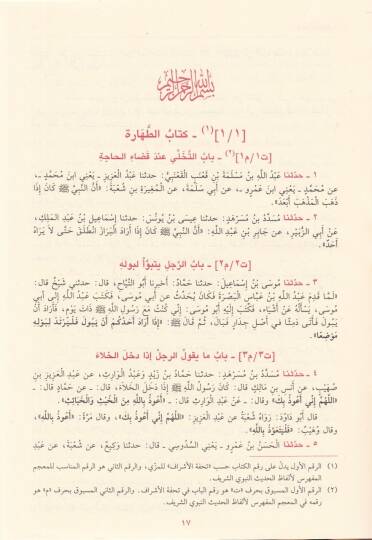 بسم الله الرحمن الرحيم
[١/١](١) - كتابُ الطَّهَارة
[ت١/م١](٢) - بابُ التَّخَلِّي عندَ قضاءِ الحاجةِ
١ - حدّثنا عَبْدُ اللَّهِ بْنُ مَسْلَمَةَ بْنِ قَعْنَبٍ الْقَعْنَبِيُّ: حدثنا عَبْدُ الْعَزِيزِ - يَعْنِي ابنَ مُحمَّدٍ -،
عن مُحمَّدٍ - يَعْنِي ابنَ عَمْرٍو -، عن أبي سَلَمَةَ، عن المُغِيرَةِ بنِ شُعْبَةَ: «أنَّ النَّبيَّ ﷺ كَانَ إذَا
ذَهَبَ المَذْهَبَ أَبْعَدَ».
٢ - حدّثنا مُسَدَّدُ بْنُ مُسَرْهَدٍ: حدثنا عِيسَى بْنُ يُونُسَ: حدثنا إسْمَاعِيلُ بْنُ عَبْدِ المَلِكِ،
عَنْ أَبِي الزُّبَيْرِ، عن جَابِرِ بْنِ عَبْدِ اللهِ: «أَنَّ النَّبِيَّ ﷺ كَانَ إذَا أَرَادَ الْبَرَازَ انْطَلَقَ حَتَّى لا يَرَاهُ
أَحَدٌ».
[ت٢/م٢] - بابُ الرَّجلِ يتبوَّأُ لبولِهِ
٣ - حدّثنا مُوسَى بْنُ إسْمَاعِيلَ: حدثنا حَمَّادٌ: أخبرنا أبُو التَّيَّاحِ، قال: حدثني شَيْخٌ قال:
«لَمَّا قَدِمَ عَبْدُ اللَّهِ بْنُ عَبَّاسٍ الْبَصْرَةَ فَكَانَ يُحَدَّثُ عن أَبِي مُوسَى، فَكَتَبَ عَبْدُ اللَّهِ إلَى أبِي
مُوسَى، يَسْأَلُهُ عَنْ أشْيَاءَ، فَكَتَبَ إلَيْهِ أَبُو مُوسَى، إنِّي كُنْتُ مَعَ رَسُولِ اللَّهِ ﷺ ذَاتَ يَوْمٍ، فَأَرَادَ أَنْ
يَبُولَ فَأَتَى دَمِثًا في أصْلِ جِدَارٍ فَبَالَ، ثُمَّ قَالَ ﷺ: «إذَا أَرَادَ أَحَدُكُمْ أنْ يَبُولَ فَلْيَرْتَدْ لِبَوْلِهِ
مَوْضِعًا».
[ت٣/م٣] - بابُ ما يقولُ الرجلُ إذا دخلَ الخلاءَ
٤ - حدّثنا مُسَدَّدُ بْنُ مُسَرْهَدٍ: حدثنا حَمَّادُ بْنُ زَيْدٍ وَعَبْدُ الْوَارِثِ، عن عَبْدِ الْعَزِيزِ بْنِ
صُهَيْبٍ، عن أنَسِ بنِ مَالِكٍ قال: كَانَ رَسُولُ اللَّهِ ﷺ إذَا دَخَلَ الْخَلَاءَ، قال: - عن حَمَّادٍ قال: -
«اللَّهُمَّ إنِّي أَعُوذُ بِكَ» وقال: - عَنْ عَبْدِ الْوَارِثِ قال: - «أَعُوذُ بِاللَّهِ مِنَ الْخُبُثِ وَالْخَبَائِثِ».
قال أَبُو دَاوُدَ: رَوَاهُ شُعْبَةُ عن عَبْدِ الْعَزِيزِ: «اللَّهُمَّ إنِّي أَعُوذُ بِكَ»، وقال، مَرَّةً: «أَعُوذُ بِاللَّهِ»،
وقال وُهَيْبٌ: «فَلْيَتَعَوَّذْ بِاللَّهِ».
٥ - حدّثنا الْحَسَنُ بْنُ عَمْرٍو - يَعْنِي السَّدُوسِيَّ - قال: حدثنا وَكِيعٌ، عن شُعْبَةَ، عن عَبْدِ
(١) الرقم الأول يدلّ على رقم الكتاب حسب «تحفة الأشراف» للمزّي، والرقم الثاني هو الرقم المناسب للمعجم
المفهرس لألفاظ الحديث النبوي الشريف.
(٢) الرقم الأول المسبوق بحرف «ت» هو رقم الباب في تحفة الأشراف. والرقم الثاني المسبوق بحرف «م» هو
رقمه في المعجم المفهرس لألفاظ الحديث النبوي الشريف.
١٧